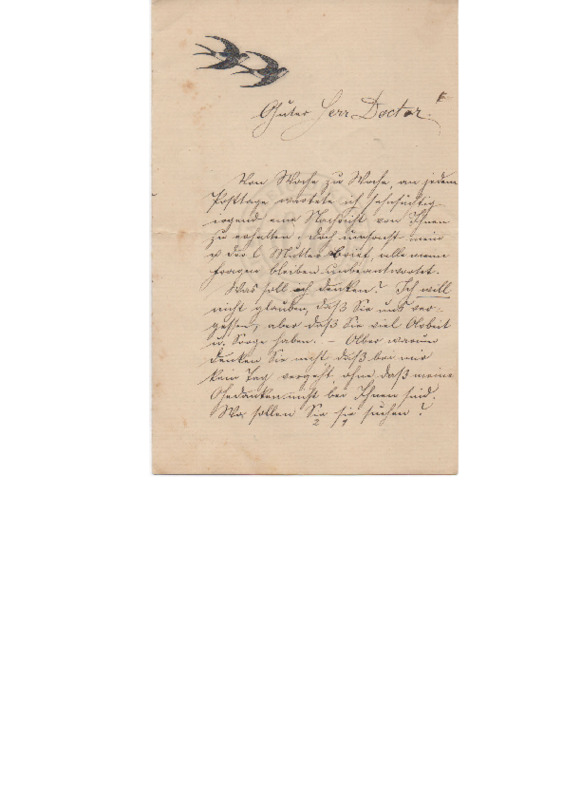 Guter Herr Doctor!
Von Woche zu Woche, an jedem
Posttage wartete ich sehnsüchtig
irgend eine Nachricht von Ihnen
zu erhalten. Doch umsonst mein
u der l Mutter Brief, alle meine
Fragen bleiben unbeantwortet.
Was soll ich denken? Ich will
nicht glauben, daß Sie uns ver-
gessen, aber daß Sie viel Arbeit
u. Sorge haben. – Aber warum
denken Sie nicht daß bei mir
kein Tag vergeht ohne daß meine
Gedanken nicht bei Ihnen sind.
Wo sollen Sie sie suchen?
2 1